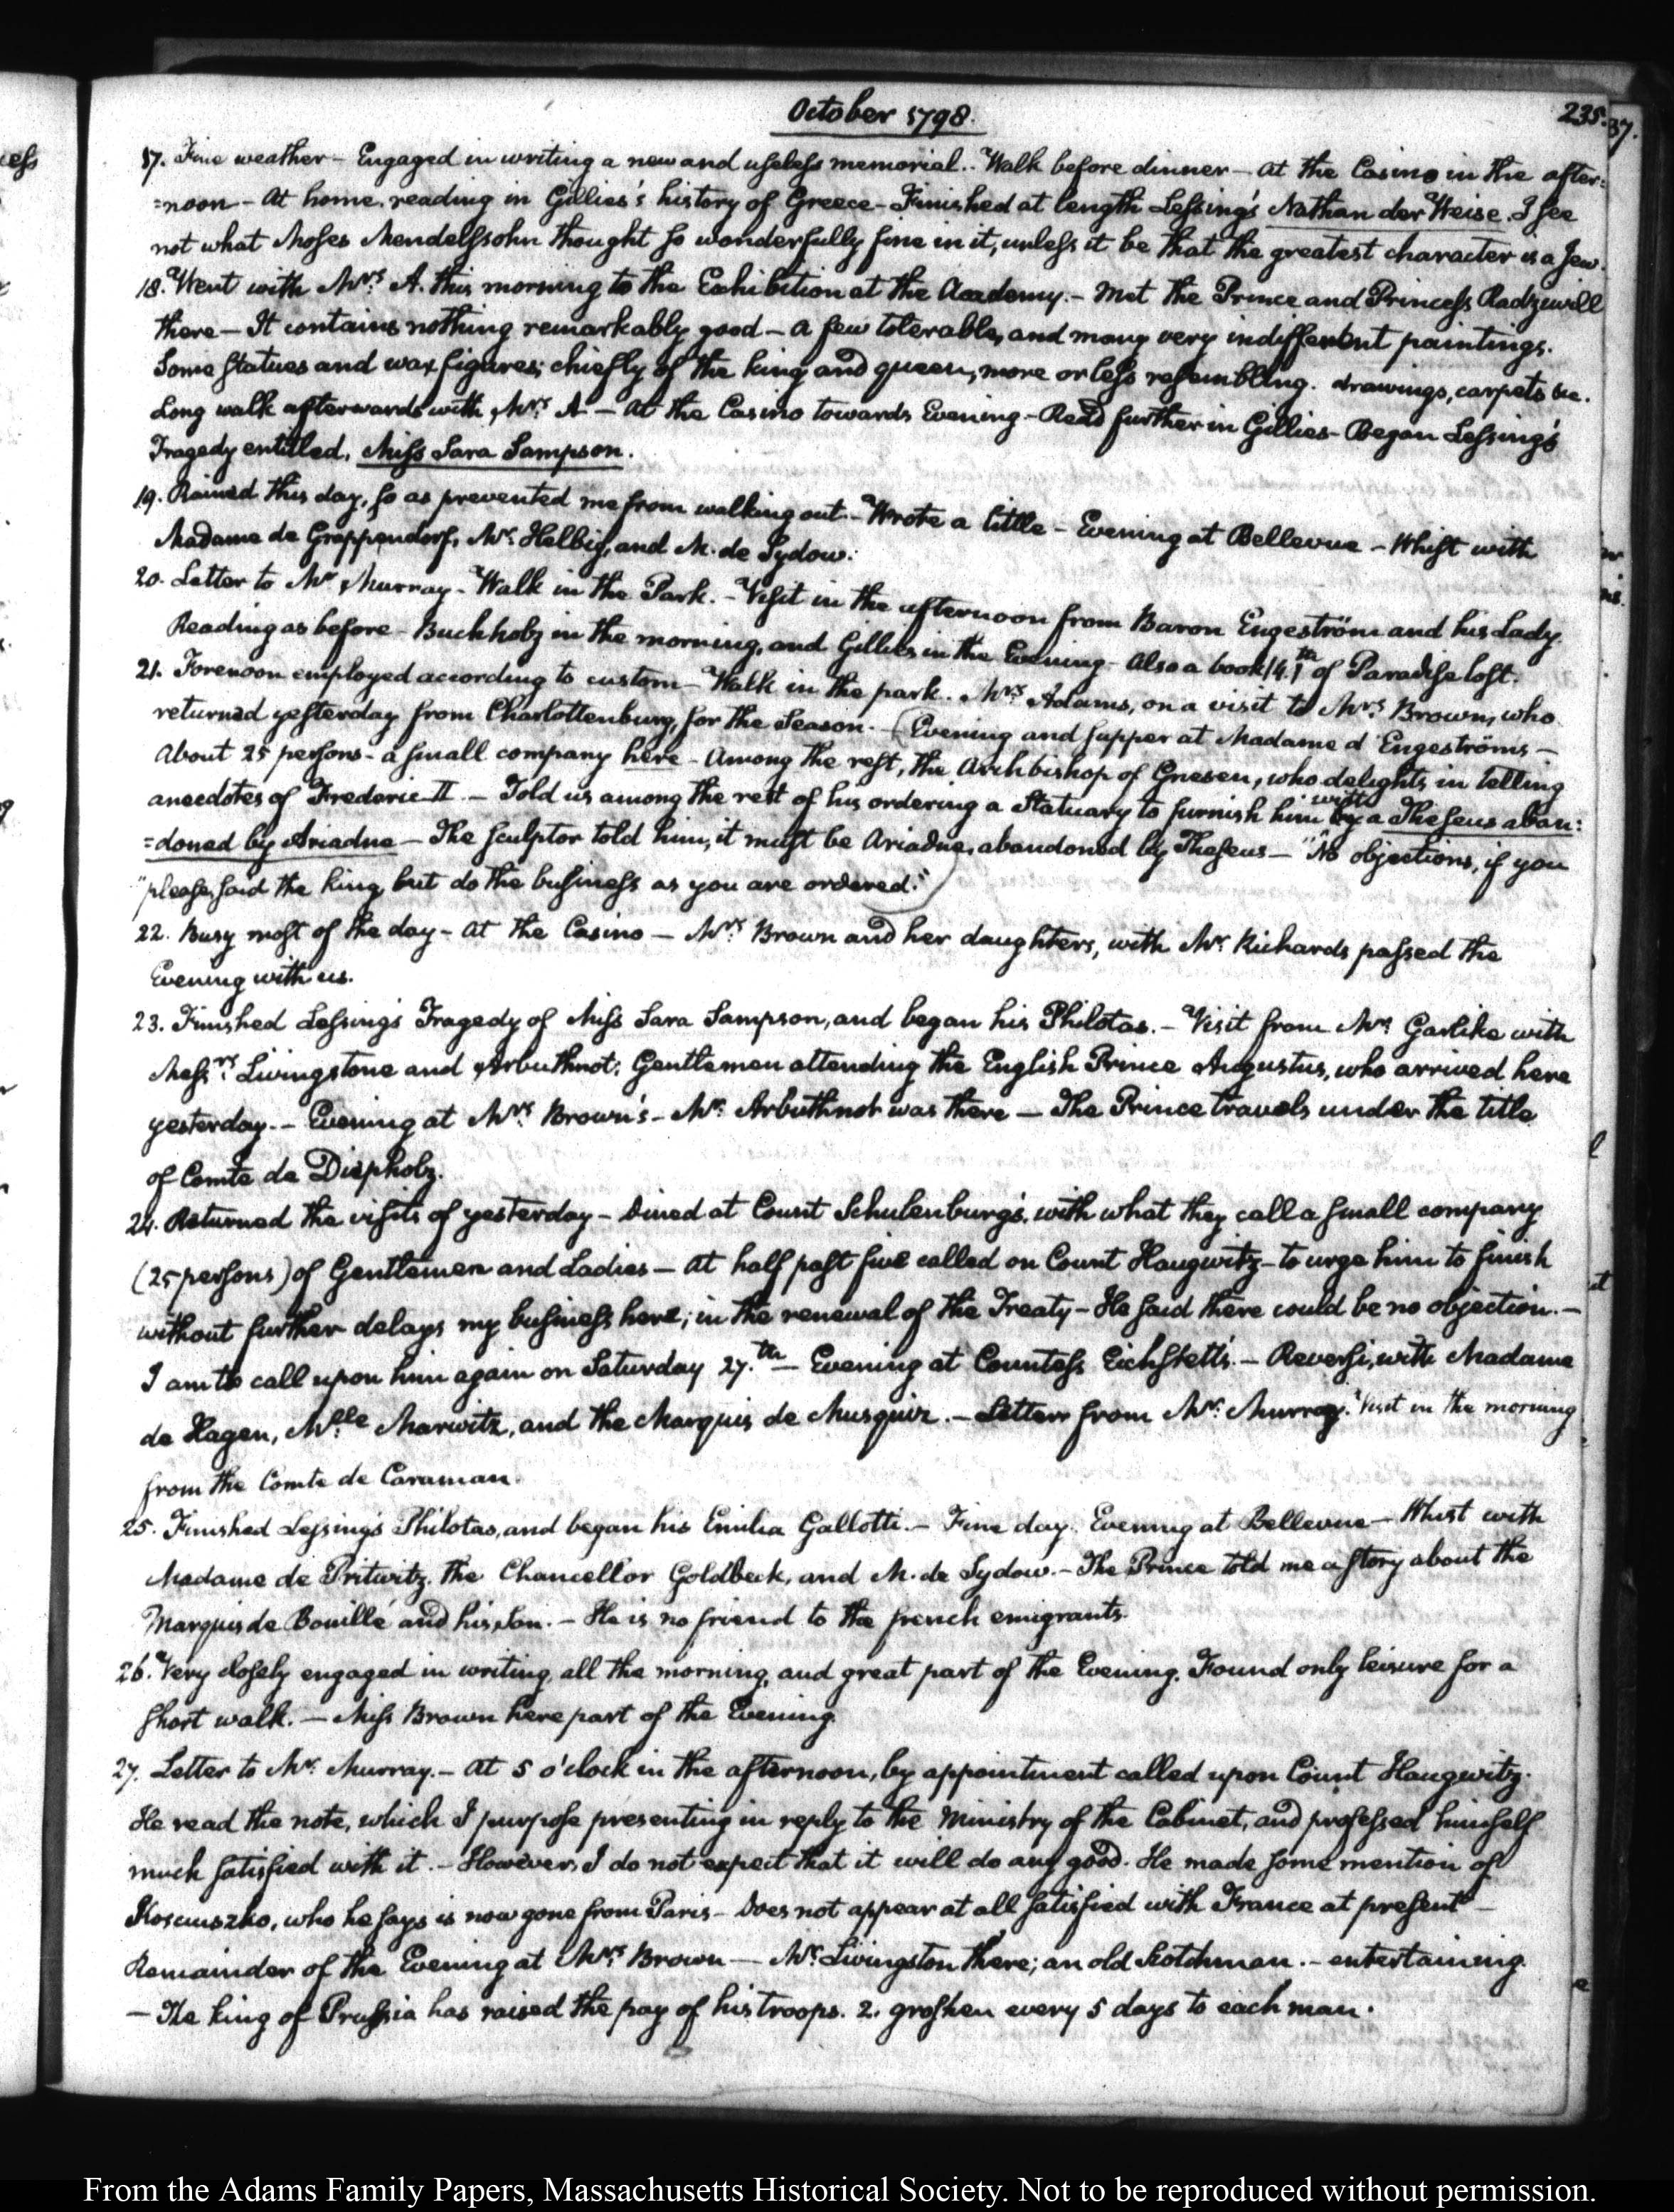 October 1798.
235.
37.
17. Fine weather — Engaged in writing a new and useless memorial.. Walk before dinner — At the Casino in the after=
=noon — At home, reading in Gillies's history of Greece — Finished at length Lessing's Nathan der Weise. I see
not what Moses Mendelssohn thought so wonderfully fine in it, unless it be that the greatest character is a Jew.
18. Went with Mrs. A. this morning to the Exhibition at the Academy. — Met the Prince and Princess Radziwill
there — It contains nothing remarkably good — A few tolerable, and many very indifferent paintings.
Some statues and wax figures; chiefly of the king and queen, more or less resembling. drawings, carpets &c.
Long walk afterwards with Mrs. A — At the Casino towards Evening — Read further in Gillies — Began Lessing's
Tragedy entitled, Miss Sara Sampson.
19. Rained this day, so as prevented me from walking out. — Wrote a little — Evening at Bellevue — Whist with
Madame de Grappendorf, Mr. Helbig, and M. de Sydow.
20. Letter to Mr Murray — Walk in the Park. — Visit in the afternoon from Baron Engeström and his Lady.
Reading as before — Buchholz in the morning, and Gillies in the Evening — Also a book (4.)th of Paradise lost.
21. Forenoon employed according to custom — Walk in the park. Mrs Adams, on a visit to Mrs. Brown, who
returned yesterday from Charlottenburg, for the Season. — (Evening and supper at Madame d'Engeströms —
About 25 persons — a small company here — Among the rest, the Archbishop of Gnesen, who delights in telling
anecdotes of Frederic II. — Told us among the rest of his ordering a Statuary to furnish him with a Theseus aban=
=doned by Ariadne — The sculptor told him, it must be Ariadne, abandoned by Theseus — "No objections, if you
"please, said the king, but do the business as you are ordered.")
22. Busy most of the day — At the Casino — Mrs. Brown and her daughters, with Mr. Richards passed the
Evening with us.
23. Finished Lessing's Tragedy of Miss Sara Sampson, and began his Philotas. — Visit from Mr. Garlike with
Messrs. Livingstone and Arbuthnot; Gentlemen attending the English Prince Augustus, who arrived here
yesterday. — Evening at Mrs. Brown's — Mr. Arbuthnot was there — The Prince travels under the title
of Comte de Diepholz.
24. Returned the visits of yesterday — Dined at Count Schulenburg's, with what they call a small company
(25 persons) of Gentlemen and Ladies — At half past five called on Count Haugwitz — to urge him to finish
without further delays my business here; in the renewal of the Treaty — He said there could be no objection. —
I am to call upon him again on Saturday 27.th — Evening at Countess Eichstett's. — Reversi, with Madame
de Hagen, Mlle. Marwitz, and the Marquis de Musquiz. — Letter from Mr. Murray. Visit in the morning
from the Comte de Caraman.
25. Finished Lessing's Philotas, and began his Emilia Gallotti. — Fine day. Evening at Bellevue — Whist with
Madame de Pritwitz, the Chancellor Goldbeck, and M. de Sydow. — The Prince told me a story about the
Marquis de Bouillé and his son. — He is no friend to the french emigrants.
26. Very closely engaged in writing, all the morning, and great part of the Evening. Found only leisure for a
short walk. — Miss Brown here part of the Evening.
27. Letter to Mr. Murray. — At 5 o'clock in the afternoon, by appointment called upon Count Haugwitz.
He read the note, which I purpose presenting in reply to the Ministry of the Cabinet, and professed himself
much satisfied with it. — However, I do not expect that it will do any good. He made some mention of
Kosciuszko, who he says is now gone from Paris — Does not appear at all satisfied with France at present —
Remainder of the Evening at Mrs. Brown — Mr. Livingston there; an old Scotchman. — entertaining.
— The king of Prussia has raised the pay of his troops. 2. groschen every 5 days to each man.
From the Adams Family Papers, Massachusetts Historical Society. Not to be reproduced without permission.